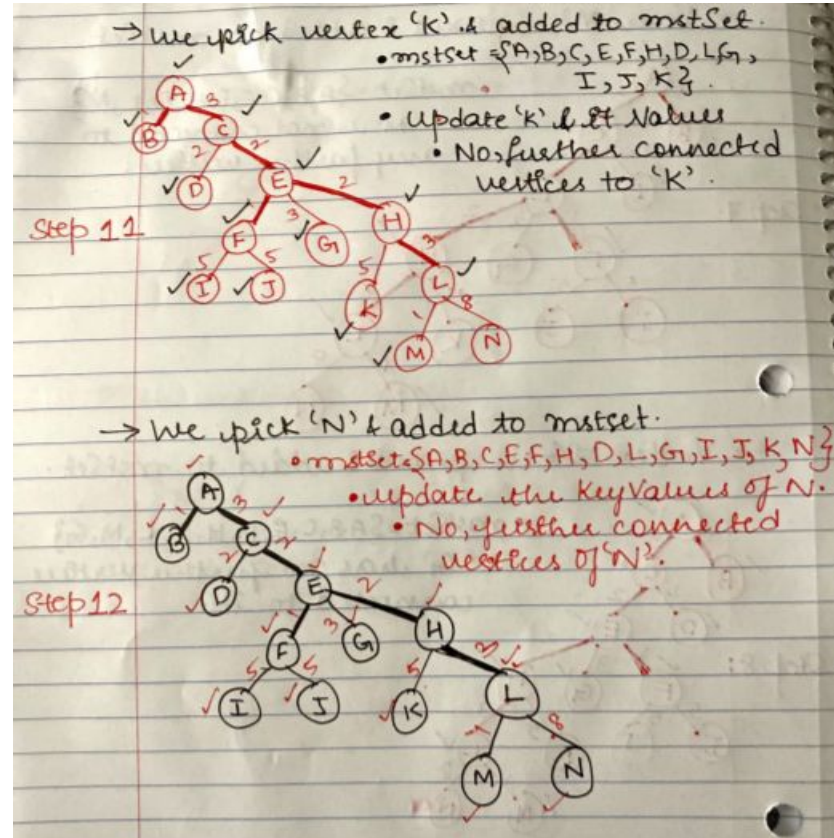 → We pick vertex 'K' & added to mstSet.
• mstSet = {A, B, C, E, F, H, D, L, G,
I, J, K}
• update 'K' & it Values
• No, further connected
vertices to 'K'.
Step 11
A
3
B
C
2
2
D
E
2
F
3
G
H
5
5
I
J
5
3
K
L
8
M
N
→ We pick 'N' & added to mstset.
• mstSet = {A, B, C, E, F, H, D, L, G, I, J, K, N}
• update the KeyValues of N.
• No, further connected
vestices of 'N'.
Step 12
A
1
3
B
C
2
2
D
E
2
1
3
F
G
H
5
5
I
J
5
3
K
L
1
8
M
N